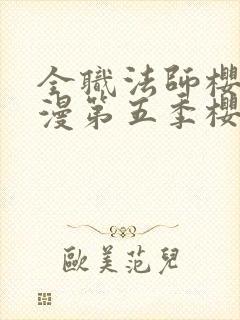 全職法師櫻
漫第五季櫻
歐美范兒